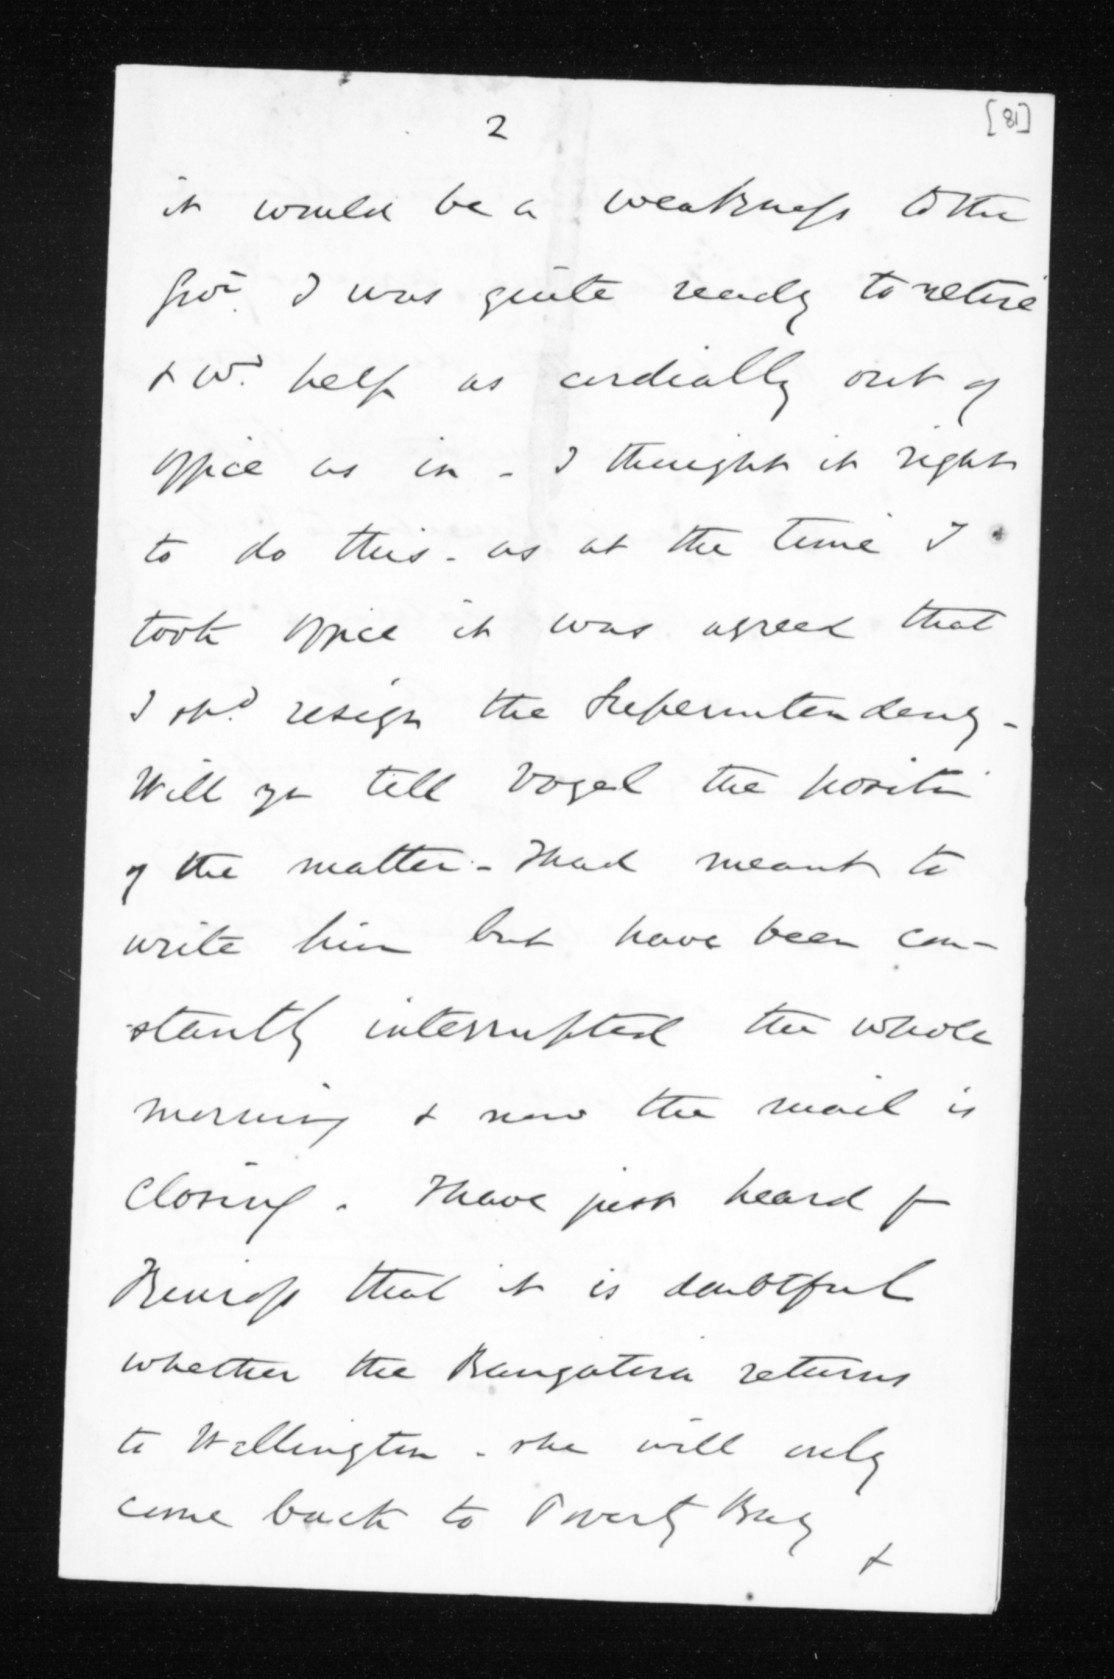 2
[81]
it would be a weakness to the
Govt. I was quite ready to retire
& wd. help as cordially out of
office as in - I thought it right
to do this - as at the time I
took office it was agreed that
I shd. resign the Superintendency -
Will you tell Vogel the position
of the matter - I had meant to
write him but have been con-
stantly interrupted the whole
morning & now the mail is
closing. I have just heard fm
that it is doubtful
whether the Rangatira returns
to Wellington - she will only
come back to Poverty Bay
&